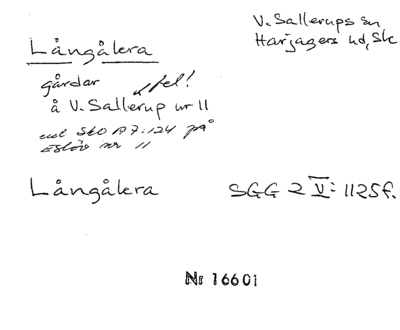 V. Sallerups sn
Harjagers hd, Sk
Långåkra
gårdar fel!
å V. Sallerup nr 11
enl SkO A7:124 på
Eslöv nr 11
Långåkra SGG 2 V: 1125f.
Nr 16601